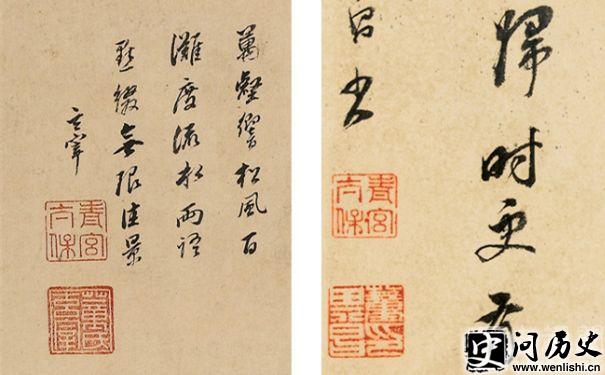 萬壑響松風百
灘度流水兩語
點綴無限佳景
玄宰
青宮
太保
歸時更
昌書
青宮
太保
问历史
www.wenlishi.cn